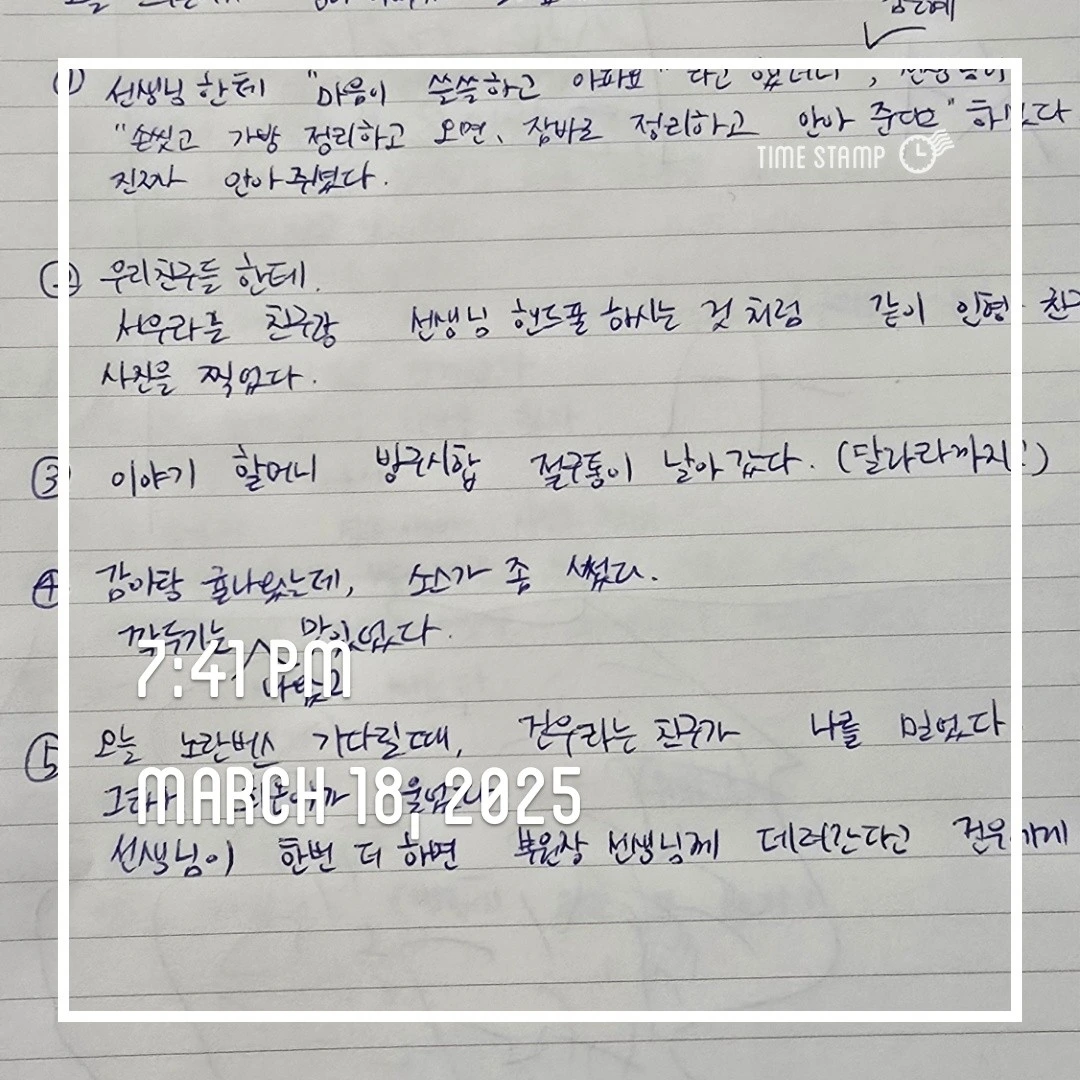 오늘
① 선생님한테 "마음이 쓸쓸하고 아파요" 라고 했더니, 선생님이
"손씻고 가방 정리하고 오면, 잠바로 정리하고 안아 준다" 하셨다
진짜 안아주셨다.
② 우리친구들 한테.
서우라는 친구랑 선생님 핸드폰 하시는 것 처럼 같이 인형
사진을 찍었다.
③ 이야기 할머니 방구시합 절구통이 날아갔다. (달라라까지!)
④ 감자탕 나왔는데, 소스가 좀 썼다.
깍두기는 맛있었다.
TIME STAMP
7:41 PM
⑤ 오늘 노란버스 기다릴때, 건우라는 친구가 나를 밀었다
MARCH 18, 2025
울었다
선생님이 한번 더 하면 부원장 선생님께 데려간다고